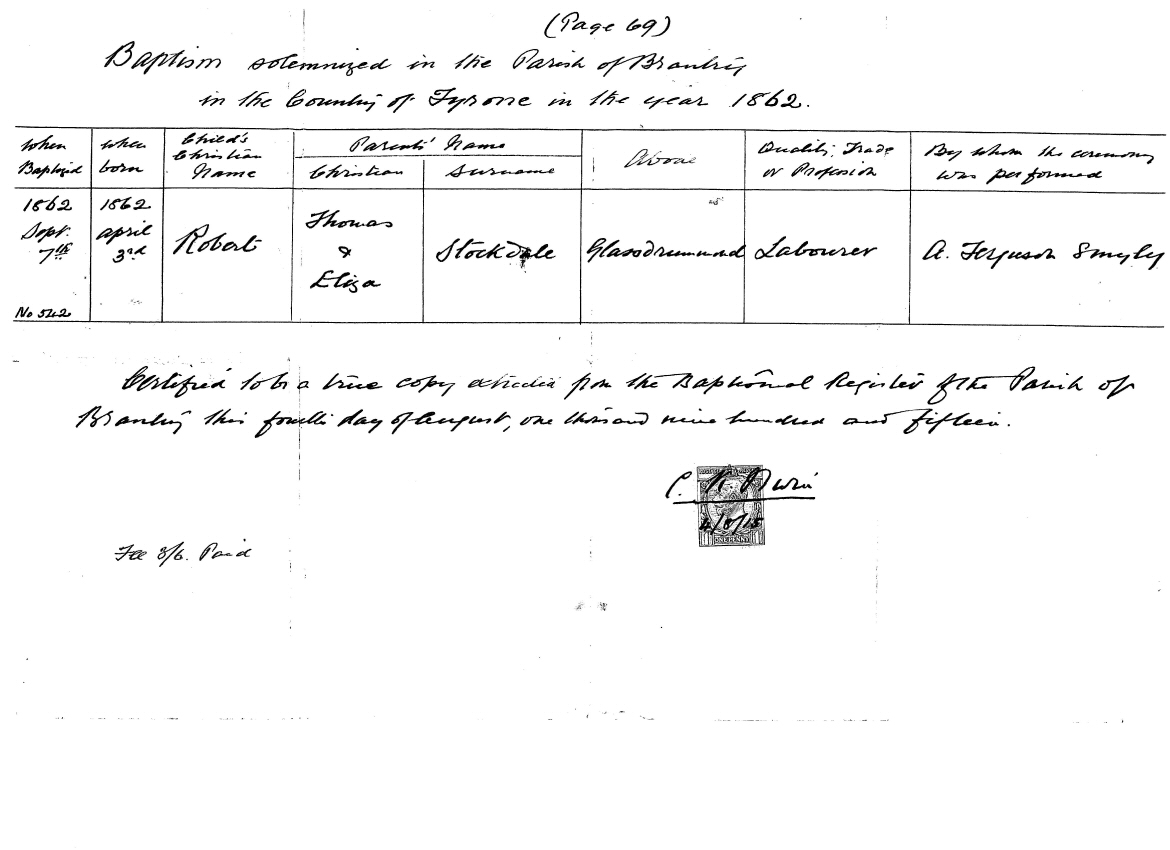 (Page 69)
Baptism solemnized in the Parish of Brantry
in the County of Tyrone in the year 1862.
When Baptized | When born | Child's Christian Name | Parents' Name | Christian | Surname | Abode | Quality, Trade or Profession | By whom the ceremony was performed
1862 Sept. 7th | 1862 April 3rd | Robert | Thomas & Eliza | Stockdale | Glassdrummond | Labourer | A. Ferguson Smyly
No 542
Certified to be a true copy from the Baptismal Register of the Parish of
Brantry this fourth day of August, one thousand nine hundred and fifteen.
C. K. Irwin
4/8/15
ONE PENNY
Fee 3/6. Paid